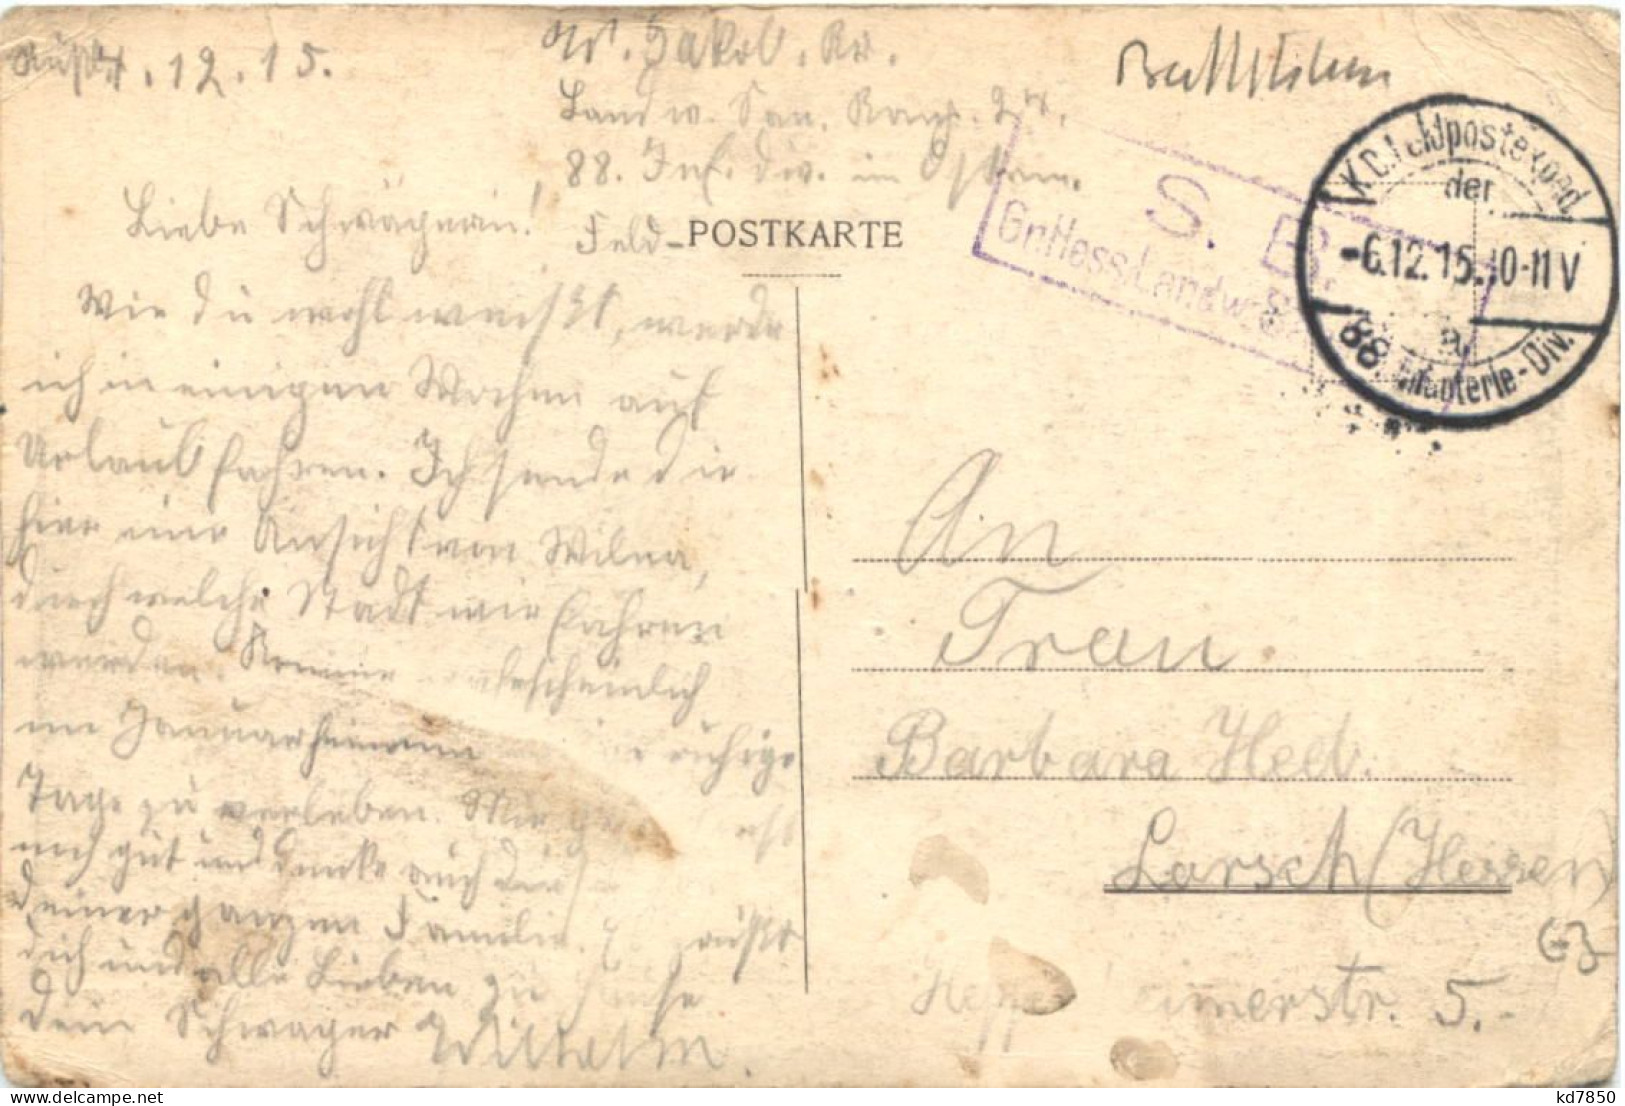 12.15.
Jakob.
Landw. San.
88. Inf. Div. im Osten.
Feld-POSTKARTE
S. B.
Gr. Hess. Landw.
K.D. Feldpostexped.
der
-6.12.15. 10-11 V
a.
88. Infanterie-Div.
Liebe Schwägerin!
Wie du wohl weißt, werde
ich in einigen Wochen auf
Urlaub fahren. Ich sende dir
hier eine Ansicht von Wilna,
durch welche Stadt wir fahren
werden
im Januar ruhige
Tage zu verleben. Mir
noch gut und denke auch
deiner ganzen Familie. Es grüßt
dich und alle Lieben zu Hause
dein Schwager Wilhelm.
An
Frau.
Barbara
Lorsch (Hessen)
Heppenheimerstr. 5.-
63
kd7850